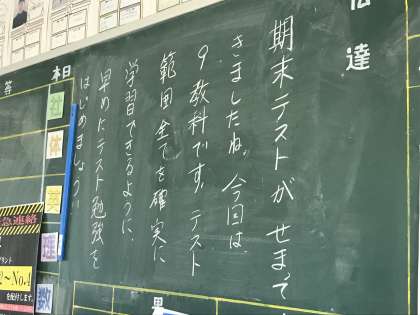 伝達
期末テストがせまって
きましたね。今回は、
9教科です。テスト
範囲全てを確実に
学習できるように、
早めにテスト勉強を
はじめましょう。
本日
社
体
英
理
数